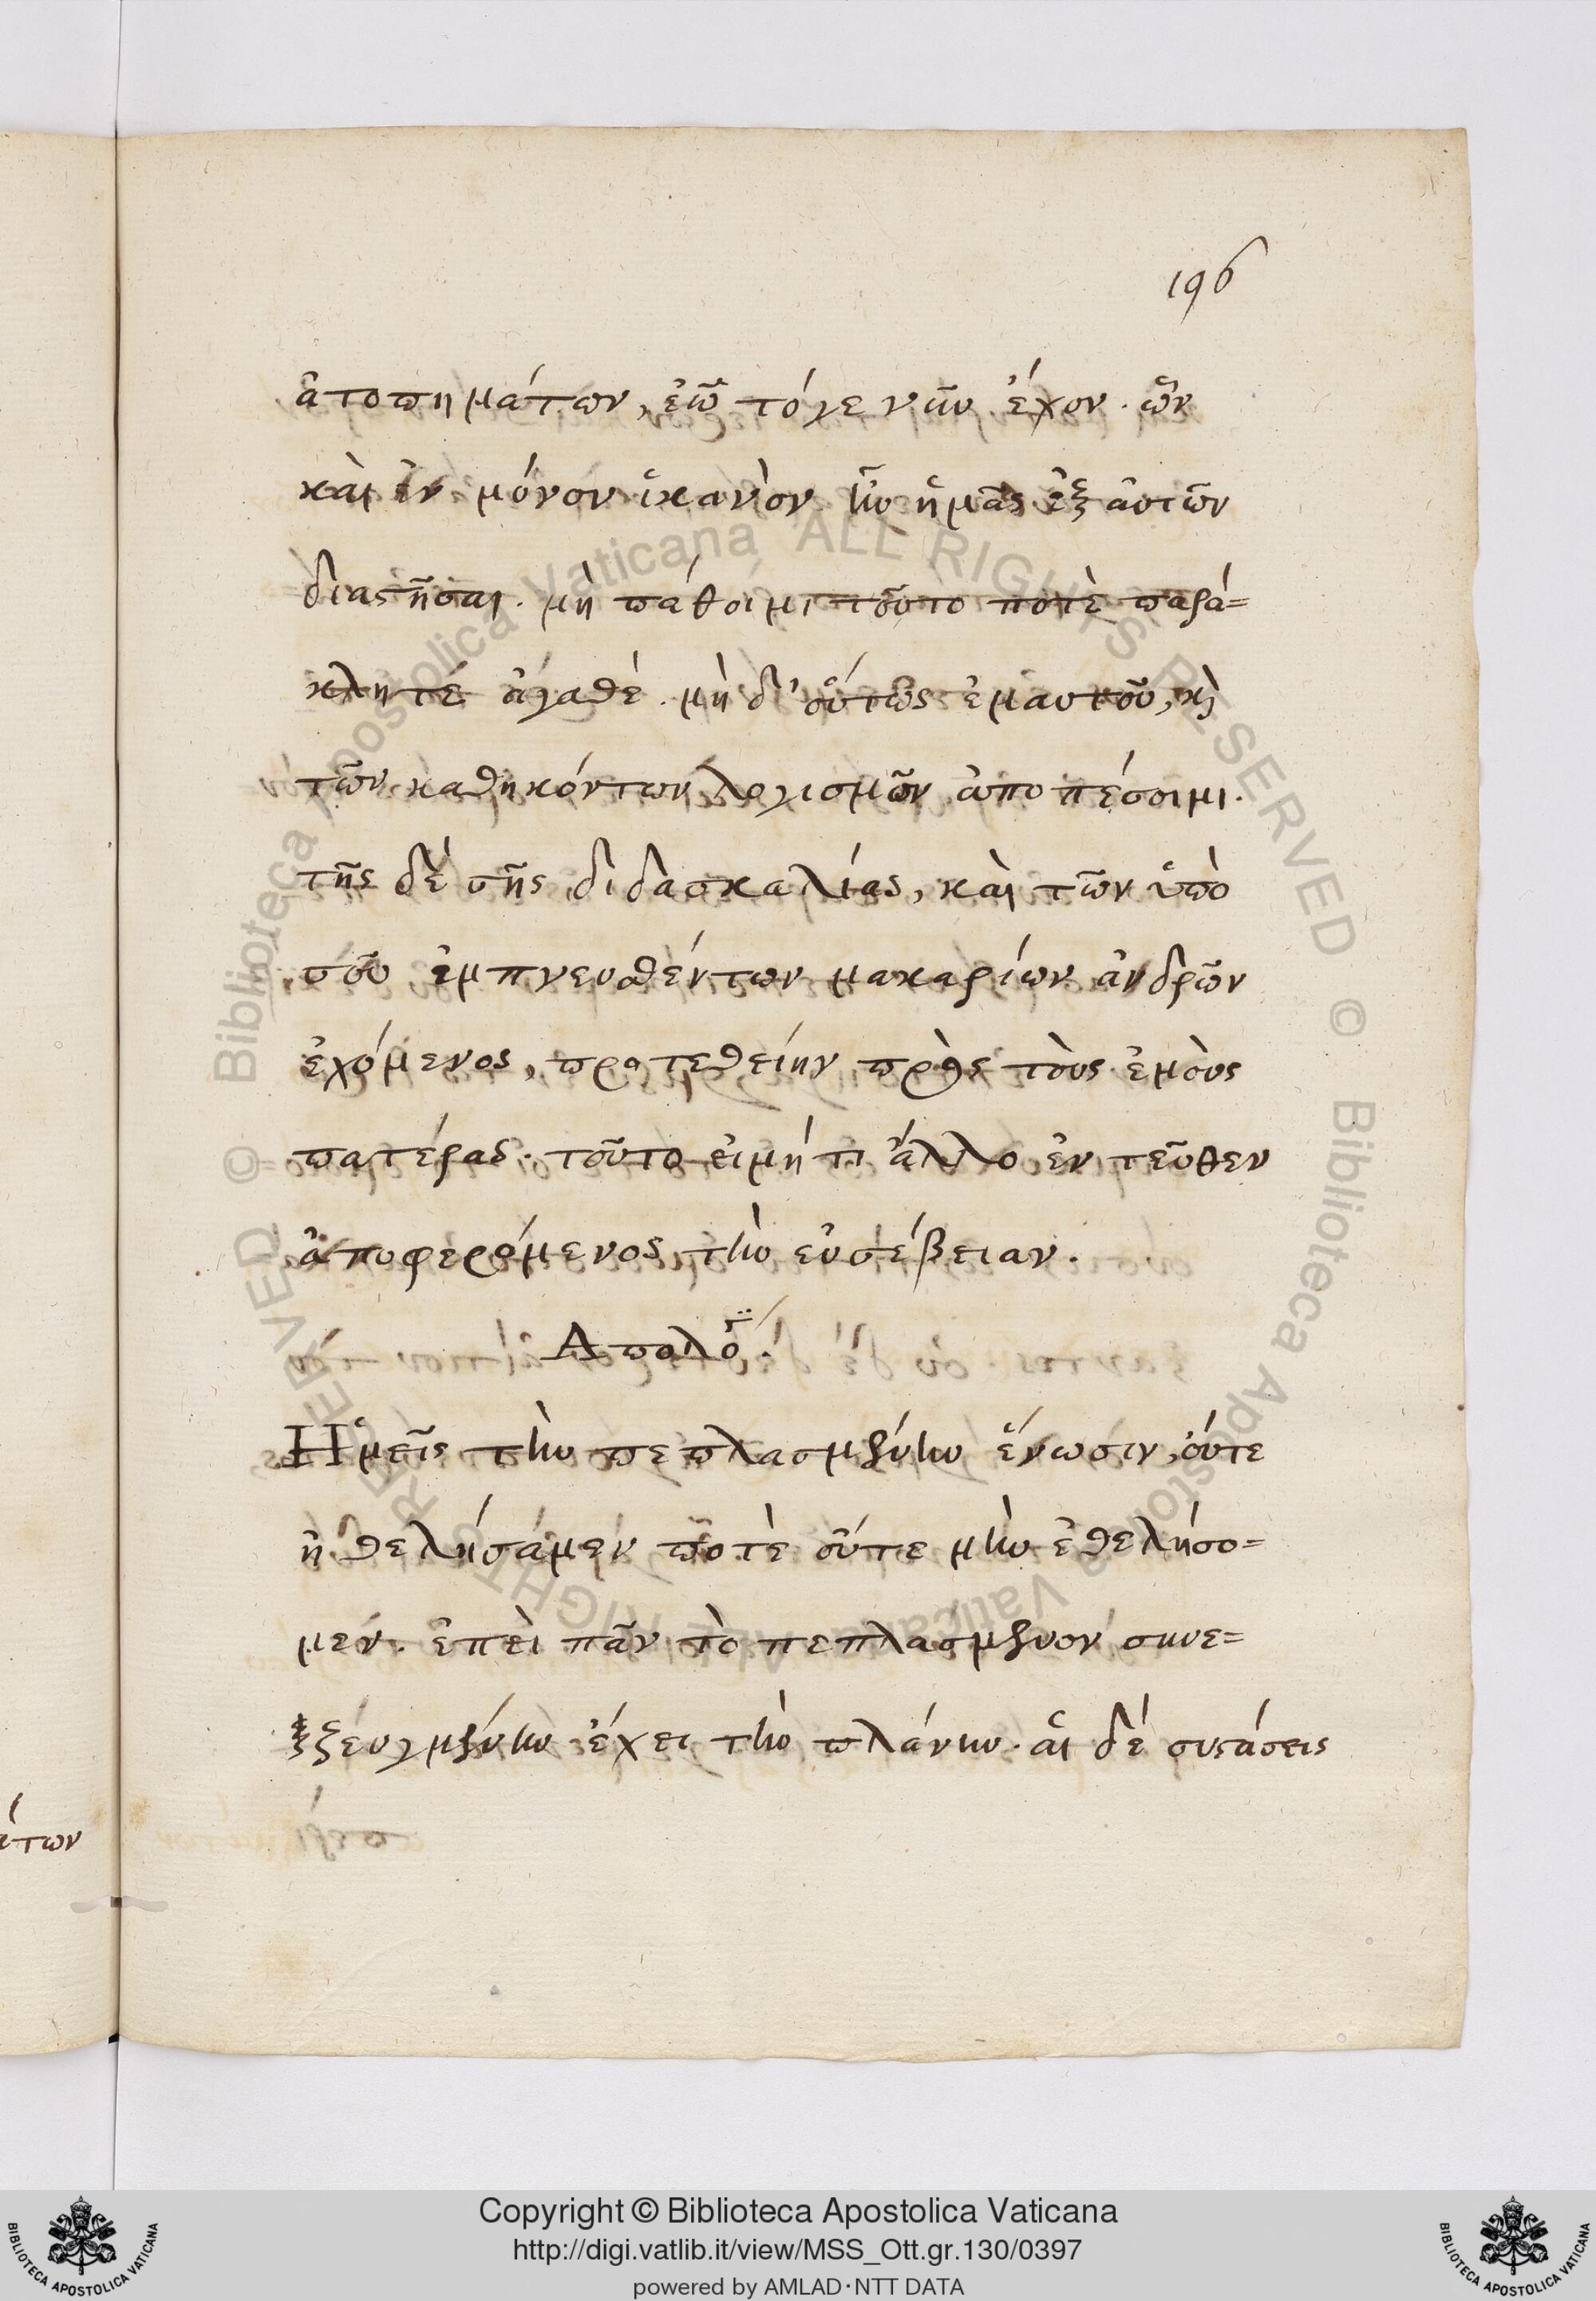 196
ἀτοπημάτων, ἐῶ τόγε νῦν ἔχον. ὧν
καὶ ἓν μόνον ἱκανὸν ἦν ἡμᾶς ἐξ αὐτῶν
διαστῆσαι. μὴ πάθοιμι τοῦτο ποτὲ παρά=
κλητέ ἀγαθέ. μὴ δ' οὕτως ἐμαυτοῦ, κὶ
τῶν καθηκόντων λογισμῶν ἀποπέσοιμι.
τῆς δὲ σῆς διδασκαλίας, καὶ τῶν ὑπὸ
σοῦ ἐμπνευσθέντων μακαρίων ἀνδρῶν
ἐχόμενος, προτεθείην πρὸς τοὺς ἐμοὺς
πατέρας. τοῦτο εἰμήτι ἄλλο ἐντεῦθεν
ἀποφερόμενος τὴν εὐσέβειαν.
Απολό.
Ἡμεῖς τὴν πεπλασμένην ἕνωσιν, οὔτε
ἠθελήσαμεν ποτὲ οὔτε μὴν ἐθελήσο=
μεν. ἐπεὶ πᾶν τὸ πεπλασμένον συνε=
ζευγμένην ἔχει τὴν πλάνην. αἱ δὲ συστάσεις
άτων
Copyright © Biblioteca Apostolica Vaticana
http://digi.vatlib.it/view/MSS_Ott.gr.130/0397
powered by AMLAD·NTT DATA
BIBLIOTECA APOSTOLICA VATICANA
BIBLIOTECA APOSTOLICA VATICANA
© Biblioteca Apostolica Vaticana ALL RIGHTS RESERVED © Biblioteca Apostolica Vaticana ALL RIGHTS RESERVED